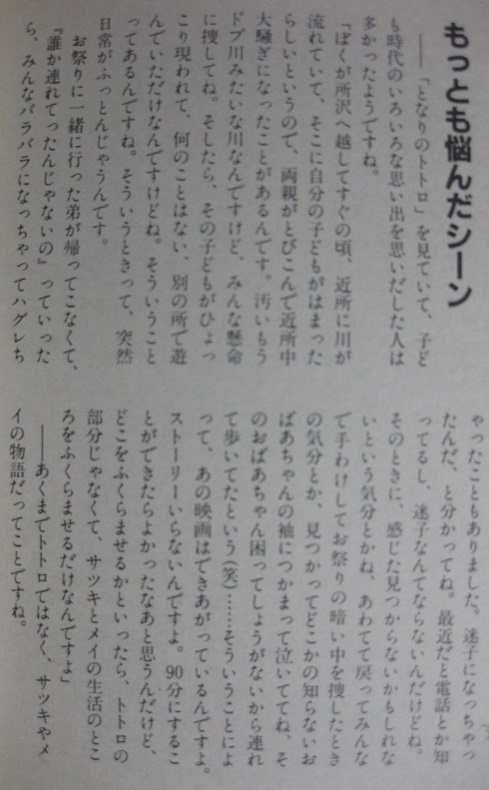 もっとも悩んだシーン
――「となりのトトロ」を見ていて、子ど
も時代のいろいろな思い出を思いだした人は
多かったようですね。
「ぼくが所沢へ越してすぐの頃、近所に川が
流れていて、そこに自分の子どもがはまった
らしいというので、両親がとびこんで近所中
大騒ぎになったことがあるんです。汚いもう
ドブ川みたいな川なんですけど、みんな懸命
に捜してね。そしたら、その子どもがひょっ
こり現われて、何のことはない、別の所で遊
んでいただけなんですけどね。そういうこと
ってあるんですね。そういうときって、突然
日常がふっとんじゃうんです。
お祭りに一緒に行った弟が帰ってこなくて、
『誰か連れてったんじゃないの』っていった
ら、みんなバラバラになっちゃってハグレち
ゃったこともありました。迷子になっちゃっ
たんだ、と分かってね。最近だと電話とか知
ってるし、迷子なんてならないんだけどね。
そのときに、感じた見つからないかもしれな
いという気分とかね、あわてて戻ってみんな
で手わけしてお祭りの暗い中を捜したとき
の気分とか、見つかってどこかの知らないお
ばあちゃんの袖につかまって泣いててね、そ
のおばあちゃん困ってしょうがないから連れ
て歩いてたという(笑)……そういうことによ
って、あの映画はできあがっているんですよ。
ストーリーいらないんですよ。90分にするこ
とができたらよかったなあと思うんだけど、
どこをふくらませるかといったら、トトロの
部分じゃなくて、サツキとメイの生活のとこ
ろをふくらませるだけなんですよ」
――あくまでトトロではなく、サツキやメ
イの物語だってことですね。